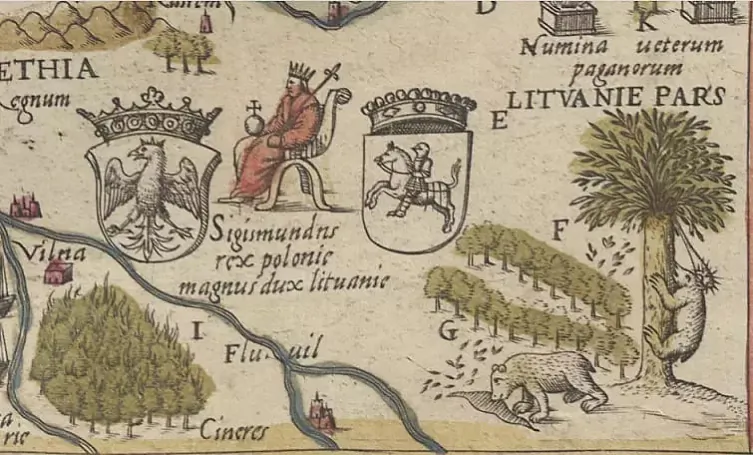 D
K
Numina ueterum
paganorum
ETHIA
egnum
LITVANIE PARS
E
F
Sigismundus
rex polonie
magnus dux lituanie
Vilna
G
I
Flu uil
Cineres
rie